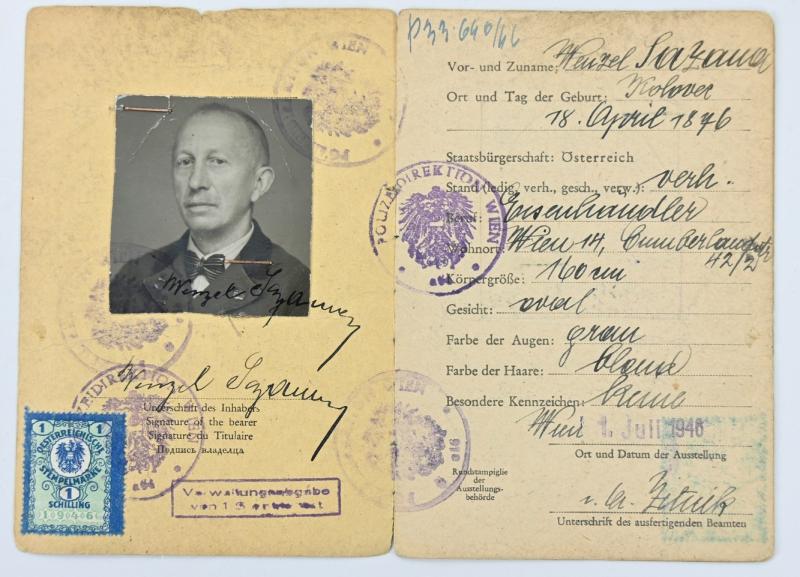 Wenzel
Wenzel
Unterschrift des Inhabers
Signature of the bearer
Signature du Titulaire
Подпись владелца
1 1
OESTERREICHISCHE
STEMPELMARKE
1
SCHILLING
1946
Verwaltungsabgabe
von 1 S entrichtet
POLIZEIDIREKTION WIEN
Vor- und Zuname: Wenzel
Ort und Tag der Geburt:
18. April 1876
Staatsbürgerschaft: Österreich
Stand (ledig, verh., gesch., verw.): verh.
Beruf: Eisenhändler
Wohnort: Wien 14,
42/2
Körpergröße: 160 cm
Gesicht: oval
Farbe der Augen: grau
Farbe der Haare: blond
Besondere Kennzeichen: keine
Wien 1. Juli 1946
Ort und Datum der Ausstellung
Rundstampiglie
der
Ausstellungs-
behörde
Unterschrift des ausfertigenden Beamten